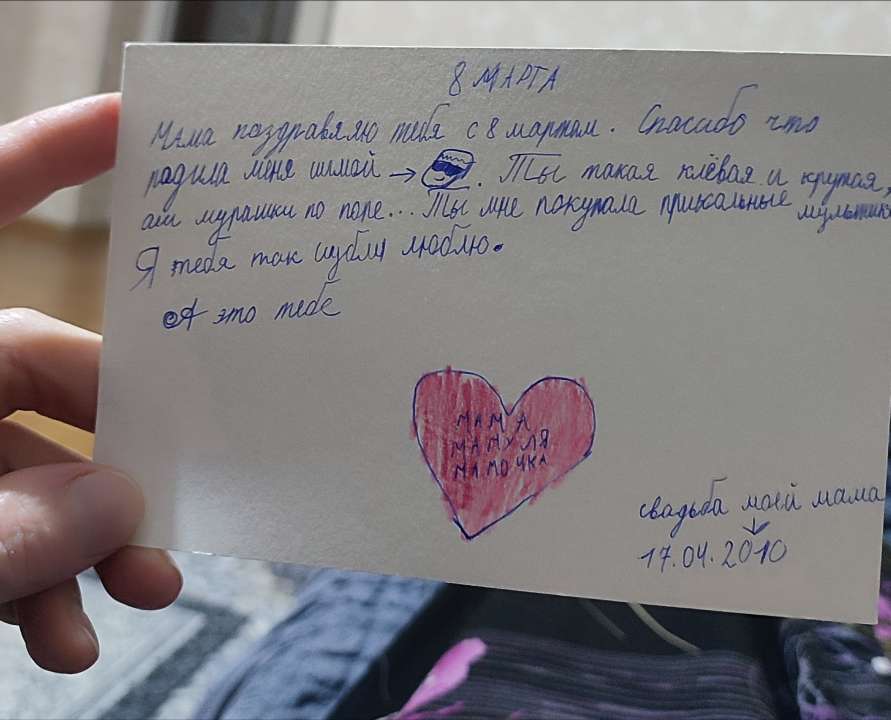 8 МАРТА
Мама поздравляю тебя с 8 мартом. Спасибо что
родила меня →. Ты такая клёвая и крутая,
аш мурашки по попе... Ты мне покупала прикольные мультики
Я тебя так люблю.
А это тебе
МАМА
МАМУЛЯ
МАМОЧКА
свадьба моей мама
↓
17.04.2010